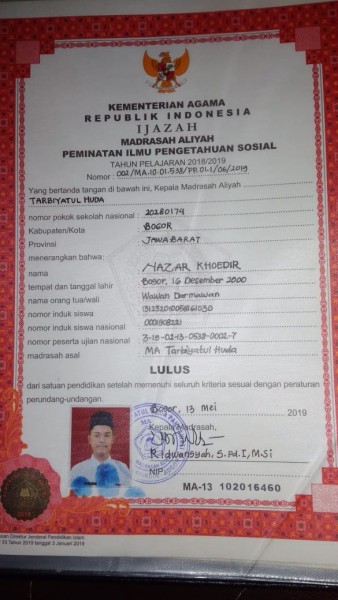 KEMENTERIAN AGAMA
REPUBLIK INDONESIA
IJAZAH
MADRASAH ALIYAH
PEMINATAN ILMU PENGETAHUAN SOSIAL
TAHUN PELAJARAN 2018/2019
Nomor : 002/MA.10.01.538/PP.01.1/06/2019
Yang bertanda tangan di bawah ini, Kepala Madrasah Aliyah
TARBIYATUL HUDA
nomor pokok sekolah nasional : 20280174
Kabupaten/Kota : BOGOR
Provinsi : JAWA BARAT
menerangkan bahwa:
nama : NAZAR KHOEDIR
tempat dan tanggal lahir : Bogor, 16 Desember 2000
nama orang tua/wali : Wawan Darmawan
nomor induk siswa :
nomor induk siswa nasional :
nomor peserta ujian nasional : 3-19-02-13-0538-0002-7
madrasah asal : MA Tarbiyatul Huda
LULUS
dari satuan pendidikan setelah memenuhi seluruh kriteria sesuai dengan peraturan
perundang-undangan.
Bogor, 13 mei 2019
Kepala Madrasah,
Ridwansyah, S.Pd.I, M.Si
NIP.
MA-13 102016460
Direktur Jenderal Pendidikan Islam
Tahun 2019 tanggal 3 Januari 2019